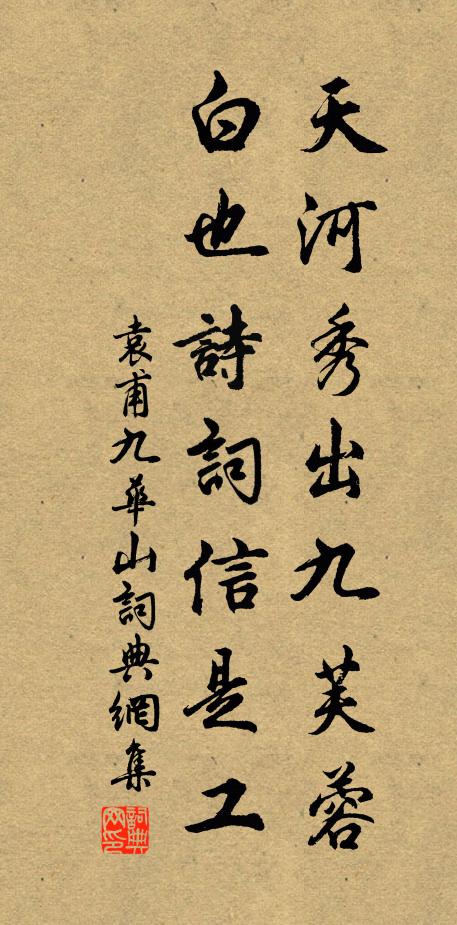 天河秀出九芙蓉
白也詩詞信是工
袁甫九華山詞典網集
詞典
网印